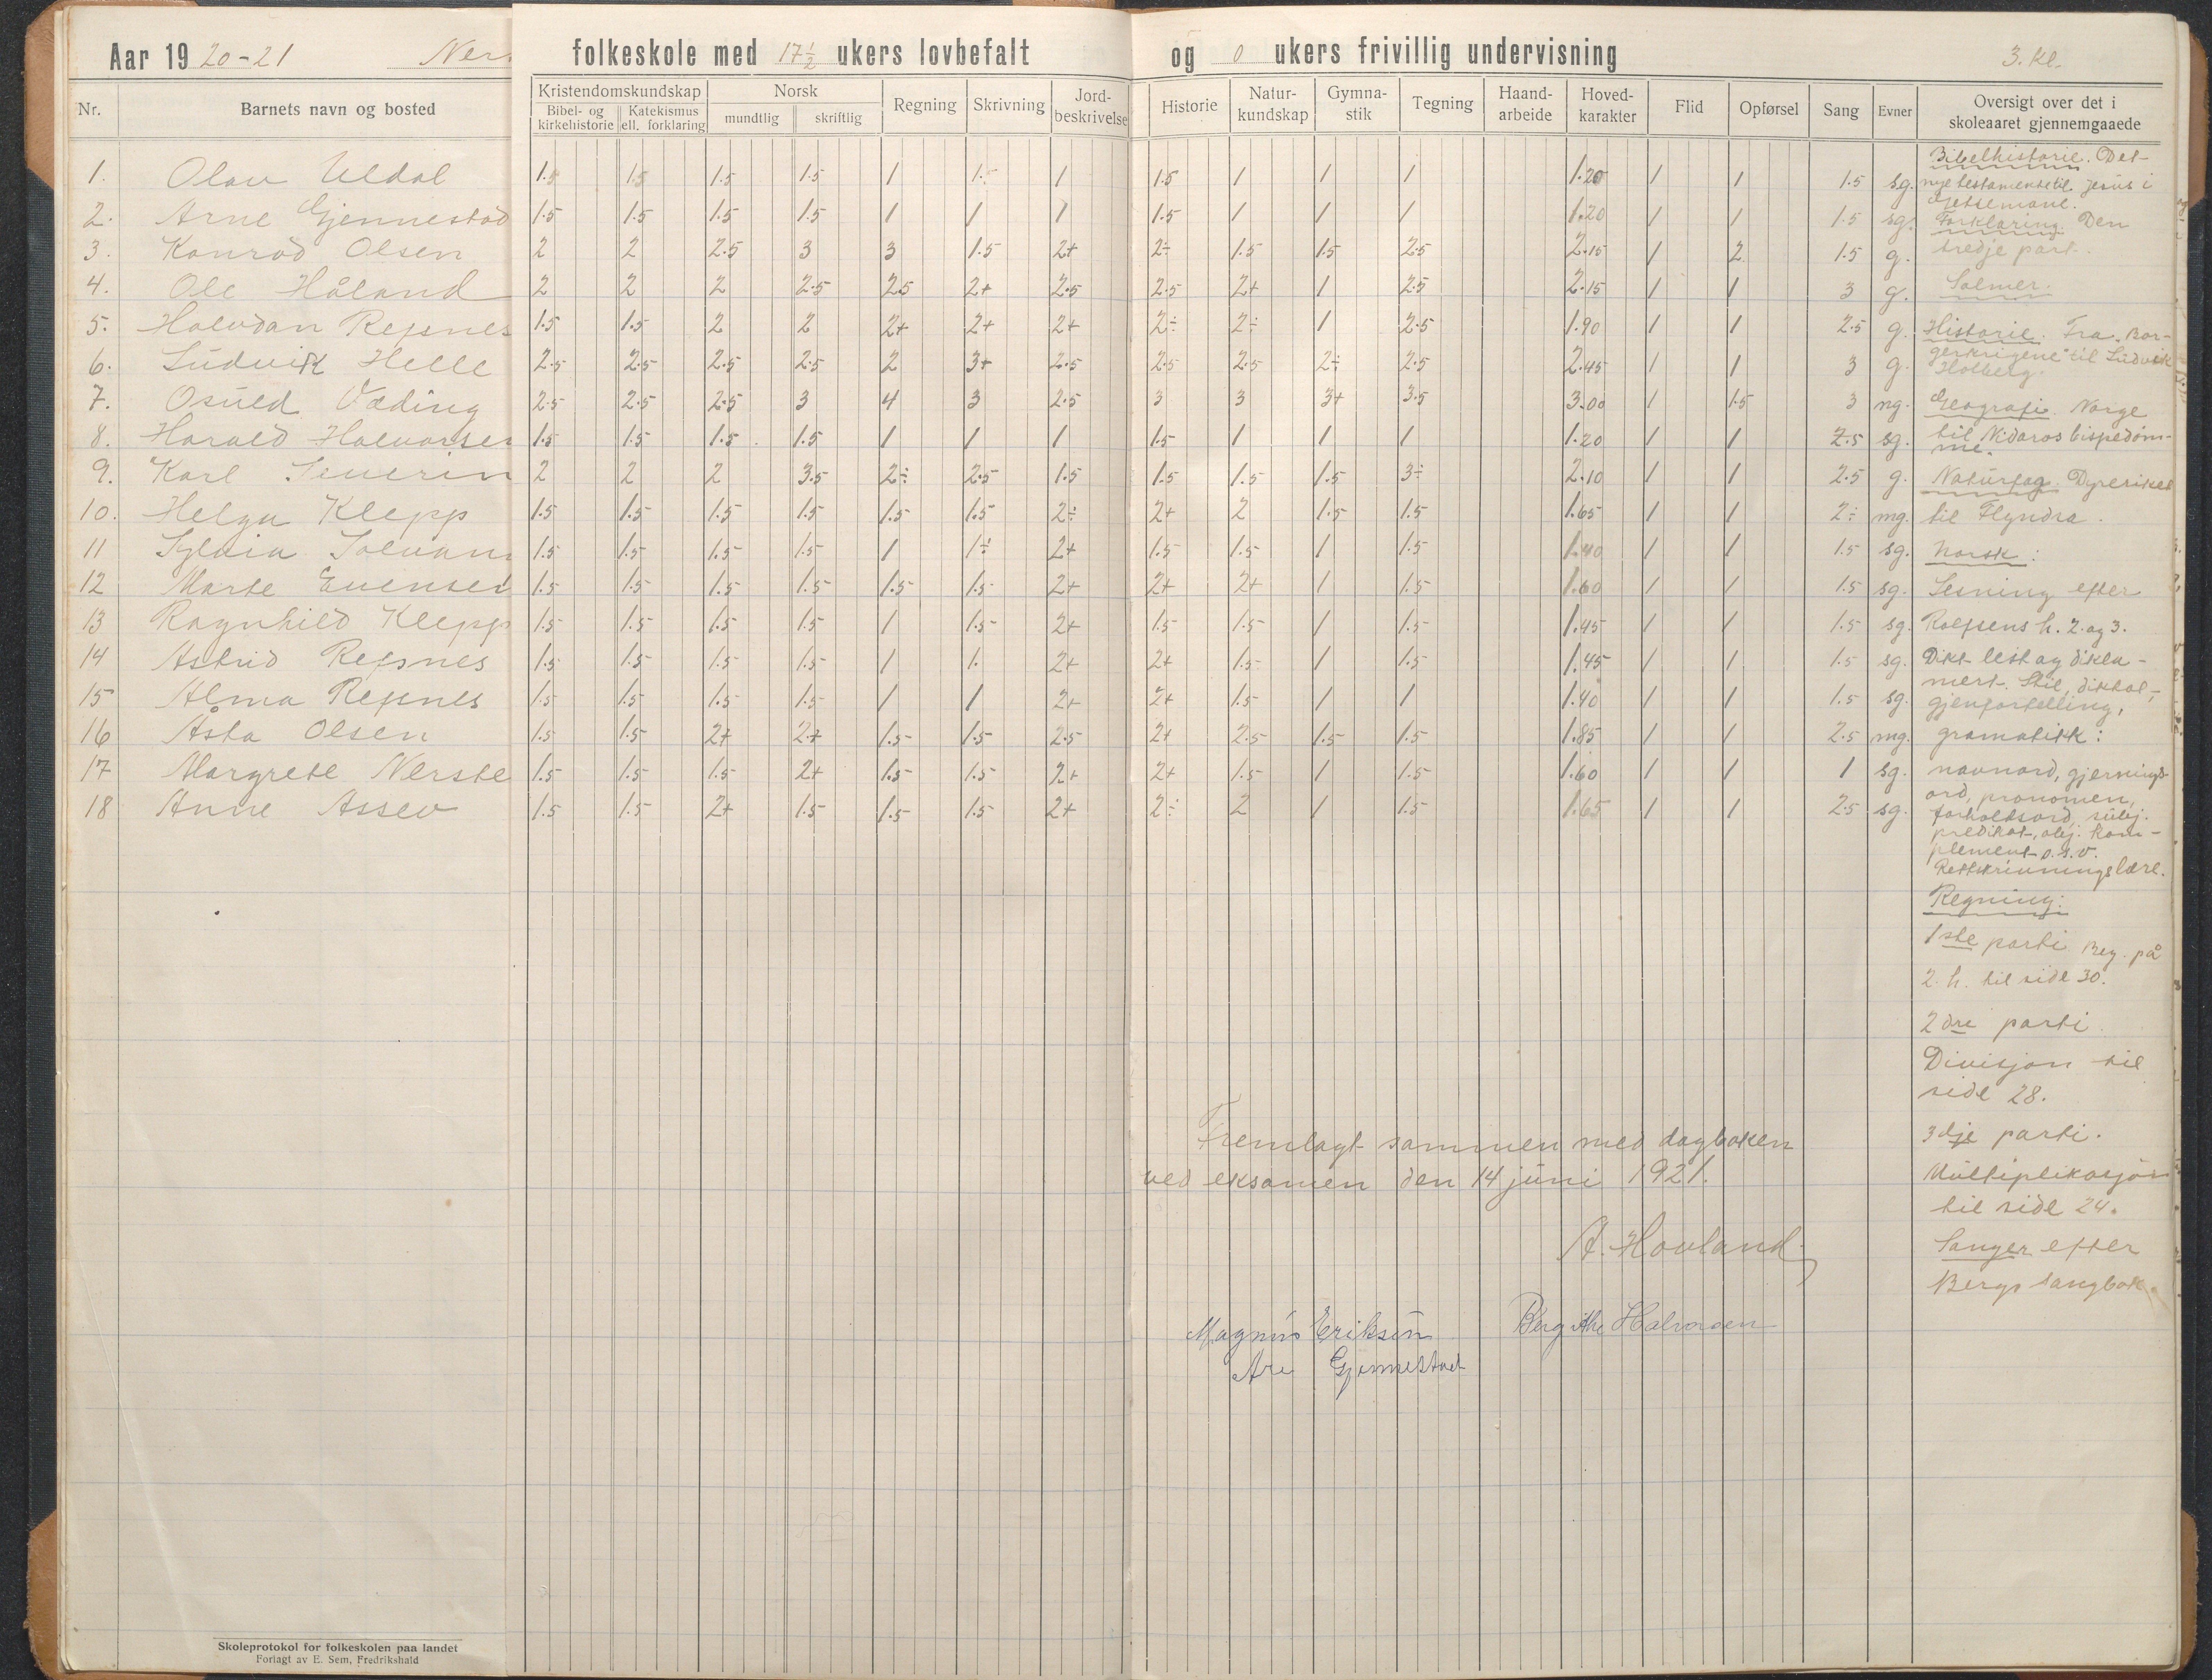 Aar 19 20-21 Ner folkeskole med 17 1/2 ukers lovbefalt og 0 ukers frivillig undervisning 3. kl.
Nr. Barnets navn og bosted Kristendomskundskap Bibel- og kirkehistorie Katekismus ell. forklaring Norsk mundtlig skriftlig Regning Skrivning Jord-beskrivelse Historie Natur-kundskap Gymna-stik Tegning Haand-arbeide Hoved-karakter Flid Opførsel Sang Evner Oversigt over det i skoleaaret gjennemgaaede
1. Olav Uldal 1.5 1.5 1.5 1.5 1 1.5 1 1.5 1 1 1 1.20 1 1 1.5 sg.
2. Arne Gjennestad 1.5 1.5 1.5 1.5 1 1 1 1.5 1 1 1 1.20 1 1 1.5 sg.
3. Konrad Olsen 2 2 2.5 3 3 1.5 2+ 2÷ 1.5 1.5 2.5 2.15 1 2 1.5 g.
4. Ole Håland 2 2 2 2.5 2.5 2+ 2.5 2.5 2+ 1 2.5 2.15 1 1 3 g.
5. Halvdan Repsnes 1.5 1.5 2 2 2+ 2+ 2+ 2÷ 2÷ 1 2.5 1.90 1 1 2.5 g.
6. Ludvik Helle 2.5 2.5 2.5 2.5 2 3+ 2.5 2.5 2.5 2÷ 2.5 2.45 1 1 3 g.
7. Osuld Væding 2.5 2.5 2.5 3 4 3 2.5 3 3 3+ 3.5 3.00 1 1.5 3 ng.
8. Harald Halvorsen 1.5 1.5 1.5 1.5 1 1 1 1.5 1 1 1 1.20 1 1 2.5 sg.
9. Karl Severin 2 2 2 3.5 2÷ 2.5 1.5 1.5 1.5 1.5 3÷ 2.10 1 1 2.5 g.
10. Helga Klepp 1.5 1.5 1.5 1.5 1.5 1.5 2÷ 2+ 2 1.5 1.5 1.65 1 1 2÷ mg.
11 Sylvia Solvan 1.5 1.5 1.5 1.5 1 1÷ 2+ 1.5 1.5 1 1.5 1.40 1 1 1.5 sg.
12 Marte Evensen 1.5 1.5 1.5 1.5 1.5 1.5 2+ 2+ 2+ 1 1.5 1.60 1 1 1.5 sg.
13 Ragnhild Klepp 1.5 1.5 1.5 1.5 1 1.5 2+ 1.5 1.5 1 1.5 1.45 1 1 1.5 sg.
14 Astrid Repsnes 1.5 1.5 1.5 1.5 1 1. 2+ 2+ 1.5 1 1.5 1.45 1 1 1.5 sg.
15 Alma Repsnes 1.5 1.5 1.5 1.5 1 1 2+ 2+ 1.5 1 1 1.40 1 1 1.5 sg.
16 Åsta Olsen 1.5 1.5 2+ 2+ 1.5 1.5 2.5 2+ 2.5 1.5 1.5 1.85 1 1 2.5 mg.
17 Margrete Nerste 1.5 1.5 1.5 2+ 1.5 1.5 2+ 2+ 1.5 1 1.5 1.60 1 1 1 sg.
18 Anne Assev 1.5 1.5 2+ 1.5 1.5 1.5 2+ 2÷ 2 1 1.5 1.65 1 1 2.5 sg.
Bibelhistorie. Det
nye testamente til Jesus i
Getsemane.
Forklaring. Den
tredje part.
Salmer.
Historie. Fra "Bor-
gerkrigene" til Ludvik
Holberg.
Geografi. Norge
til Nidaros bispedøm-
me.
Naturfag. Dyreriket
til Flyndra.
Norsk:
Lesning efter
Rolfsens h. 2. og 3.
Dikt lest og dekla-
mert. Stil, diktat,
gjenfortelling,
gramatikk:
navnord, gjernings-
ord, pronomen,
forholdsord, subj.
predikat, obj. kom-
plement o.s.v.
Rettskrivningslære.
Regning:
1ste parti Beg. på
2. h. til side 30.
2dre parti
Divisjon til
side 28.
3dje parti.
Multiplikasjon
til side 24.
Sanger efter
Bergs sangbok.
Fremlagt sammen med dagboken
ved eksamen den 14 juni 1921.
A. Hovland
Magnus Eriksen Bergithe Halvorsen
Are Gjennestad
Skoleprotokol for folkeskolen paa landet
Forlagt av E. Sem, Fredrikshald